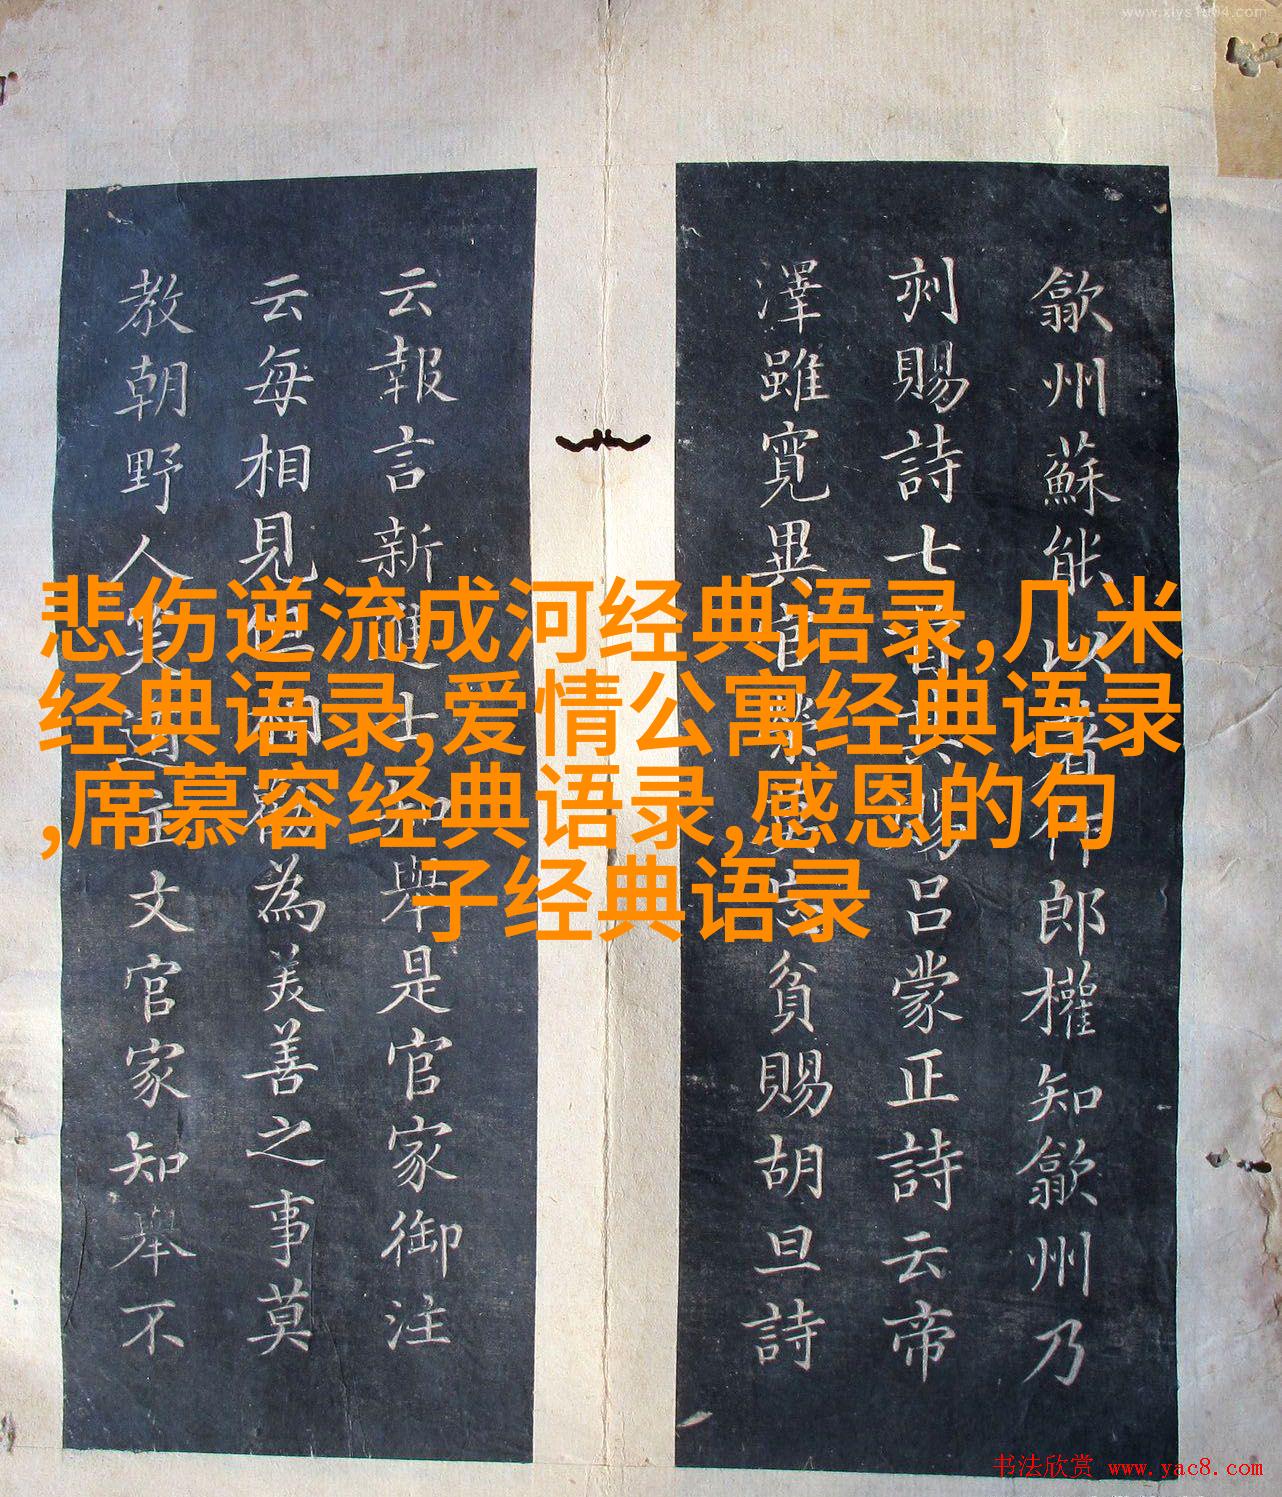 www.xiys1004.com
歙州蘇能以著作郎權知歙州乃
刻賜詩七首其賜呂蒙正詩云帝
澤雖寬自貧賜胡旦詩
云報言新進士知舉是官家御注
云每相見但相為美善之事莫
教朝野人笑正文官家知舉不
悲伤逆流成河经典语录,几米
经典语录,爱情公寓经典语录
,席慕容经典语录,感恩的句
子经典语录
书法欣赏 www.yac8.com